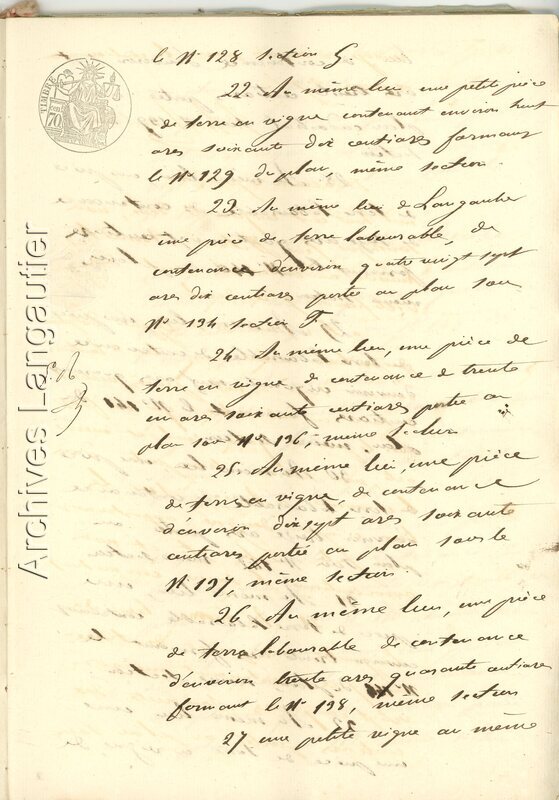 le N° 128 section F
22. Au même lieu une petite pièce
de terre en vigne contenant environ huit
ares soixante dix centiares formant
le N° 129 du plan, même section.
23. Au même lieu de Langautier
une pièce de terre labourable, de
contenance d'environ quatre vingt sept
ares dix centiares portée au plan sous
N° 134 section F.
24. Au même lieu, une pièce de
terre en vigne de contenance de trente
un ares soixante centiares portée au
plan sous N° 136, même section
25. Au même lieu, une pièce
de terre en vigne, de contenance
d'environ dix sept ares soixante
centiares portée au plan sous le
N° 137, même section.
26. Au même lieu, une pièce
de terre labourable de contenance
d'environ trente ares quarante centiares
formant le N° 138, même section
27 une petite vigne au même
TIMBRE
70
Archives Langautier